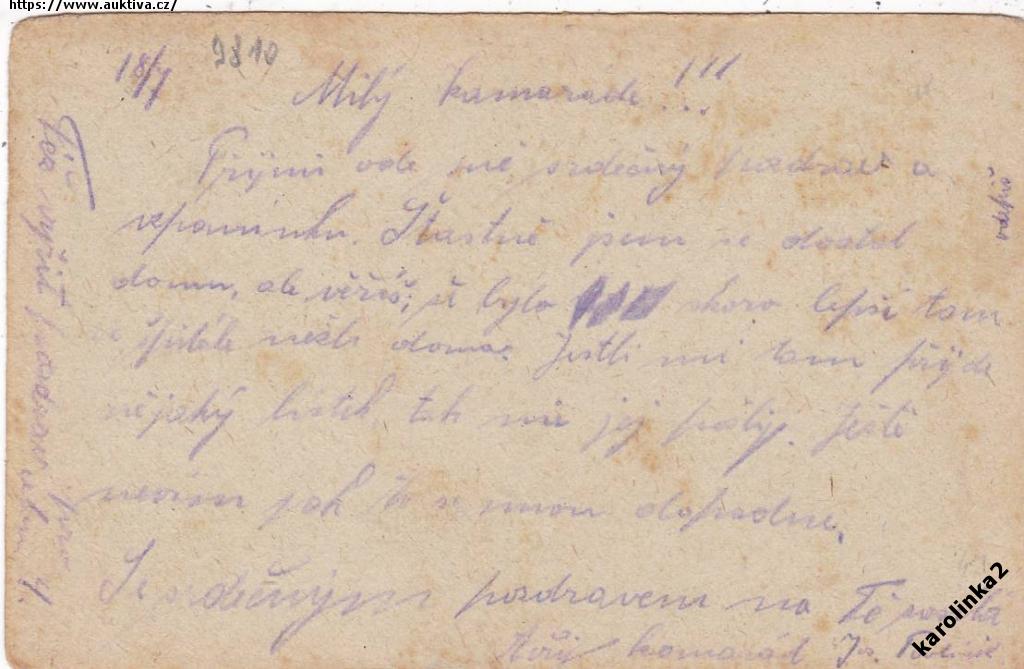 https://www.auktiva.cz/
18/7 9810
Milý kamaráde!!!
Příjmi ode mě srdečný pozdrav a
vzpomínku. Štastně jsem se dostal
domu, ale věříš, že bylo skoro lepší tam
ve špitále nežli doma. Jestli mi tam přijde
nějaký lístek, tak mi jej pošli. Ještě
nevím jak to se mnou dopadne.
Se srdečným pozdravem na Tě
kamarád
vyřiď pozdrav
karolinka2